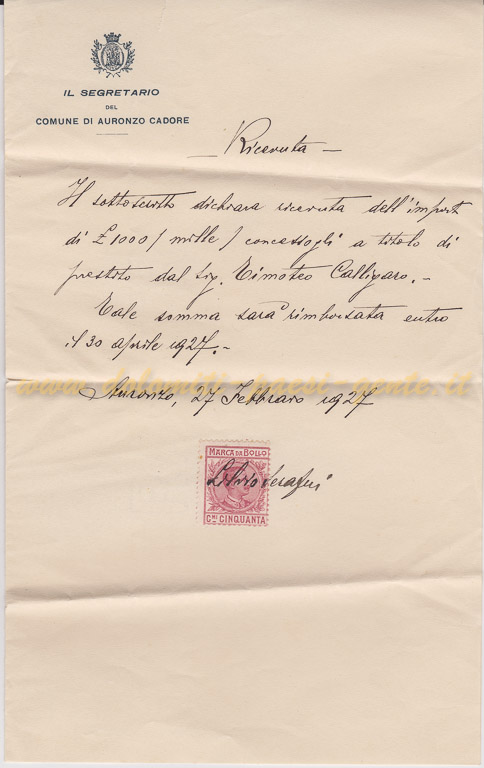 IL SEGRETARIO
DEL
COMUNE DI AURONZO CADORE
— Ricevuta —
Il sottoscritto dichiara ricevuta dell'import
di £ 1000 / mille / concessogli a titolo di
prestito dal Sig. Timoteo Calligaro.-
Tale somma sarà rimborsata entro
il 30 aprile 1927.-
www.dolomiti-paesi-gente.it
Auronzo, 27 Febbraio 1927
MARCA DA BOLLO
Serafini
CMI CINQUANTA